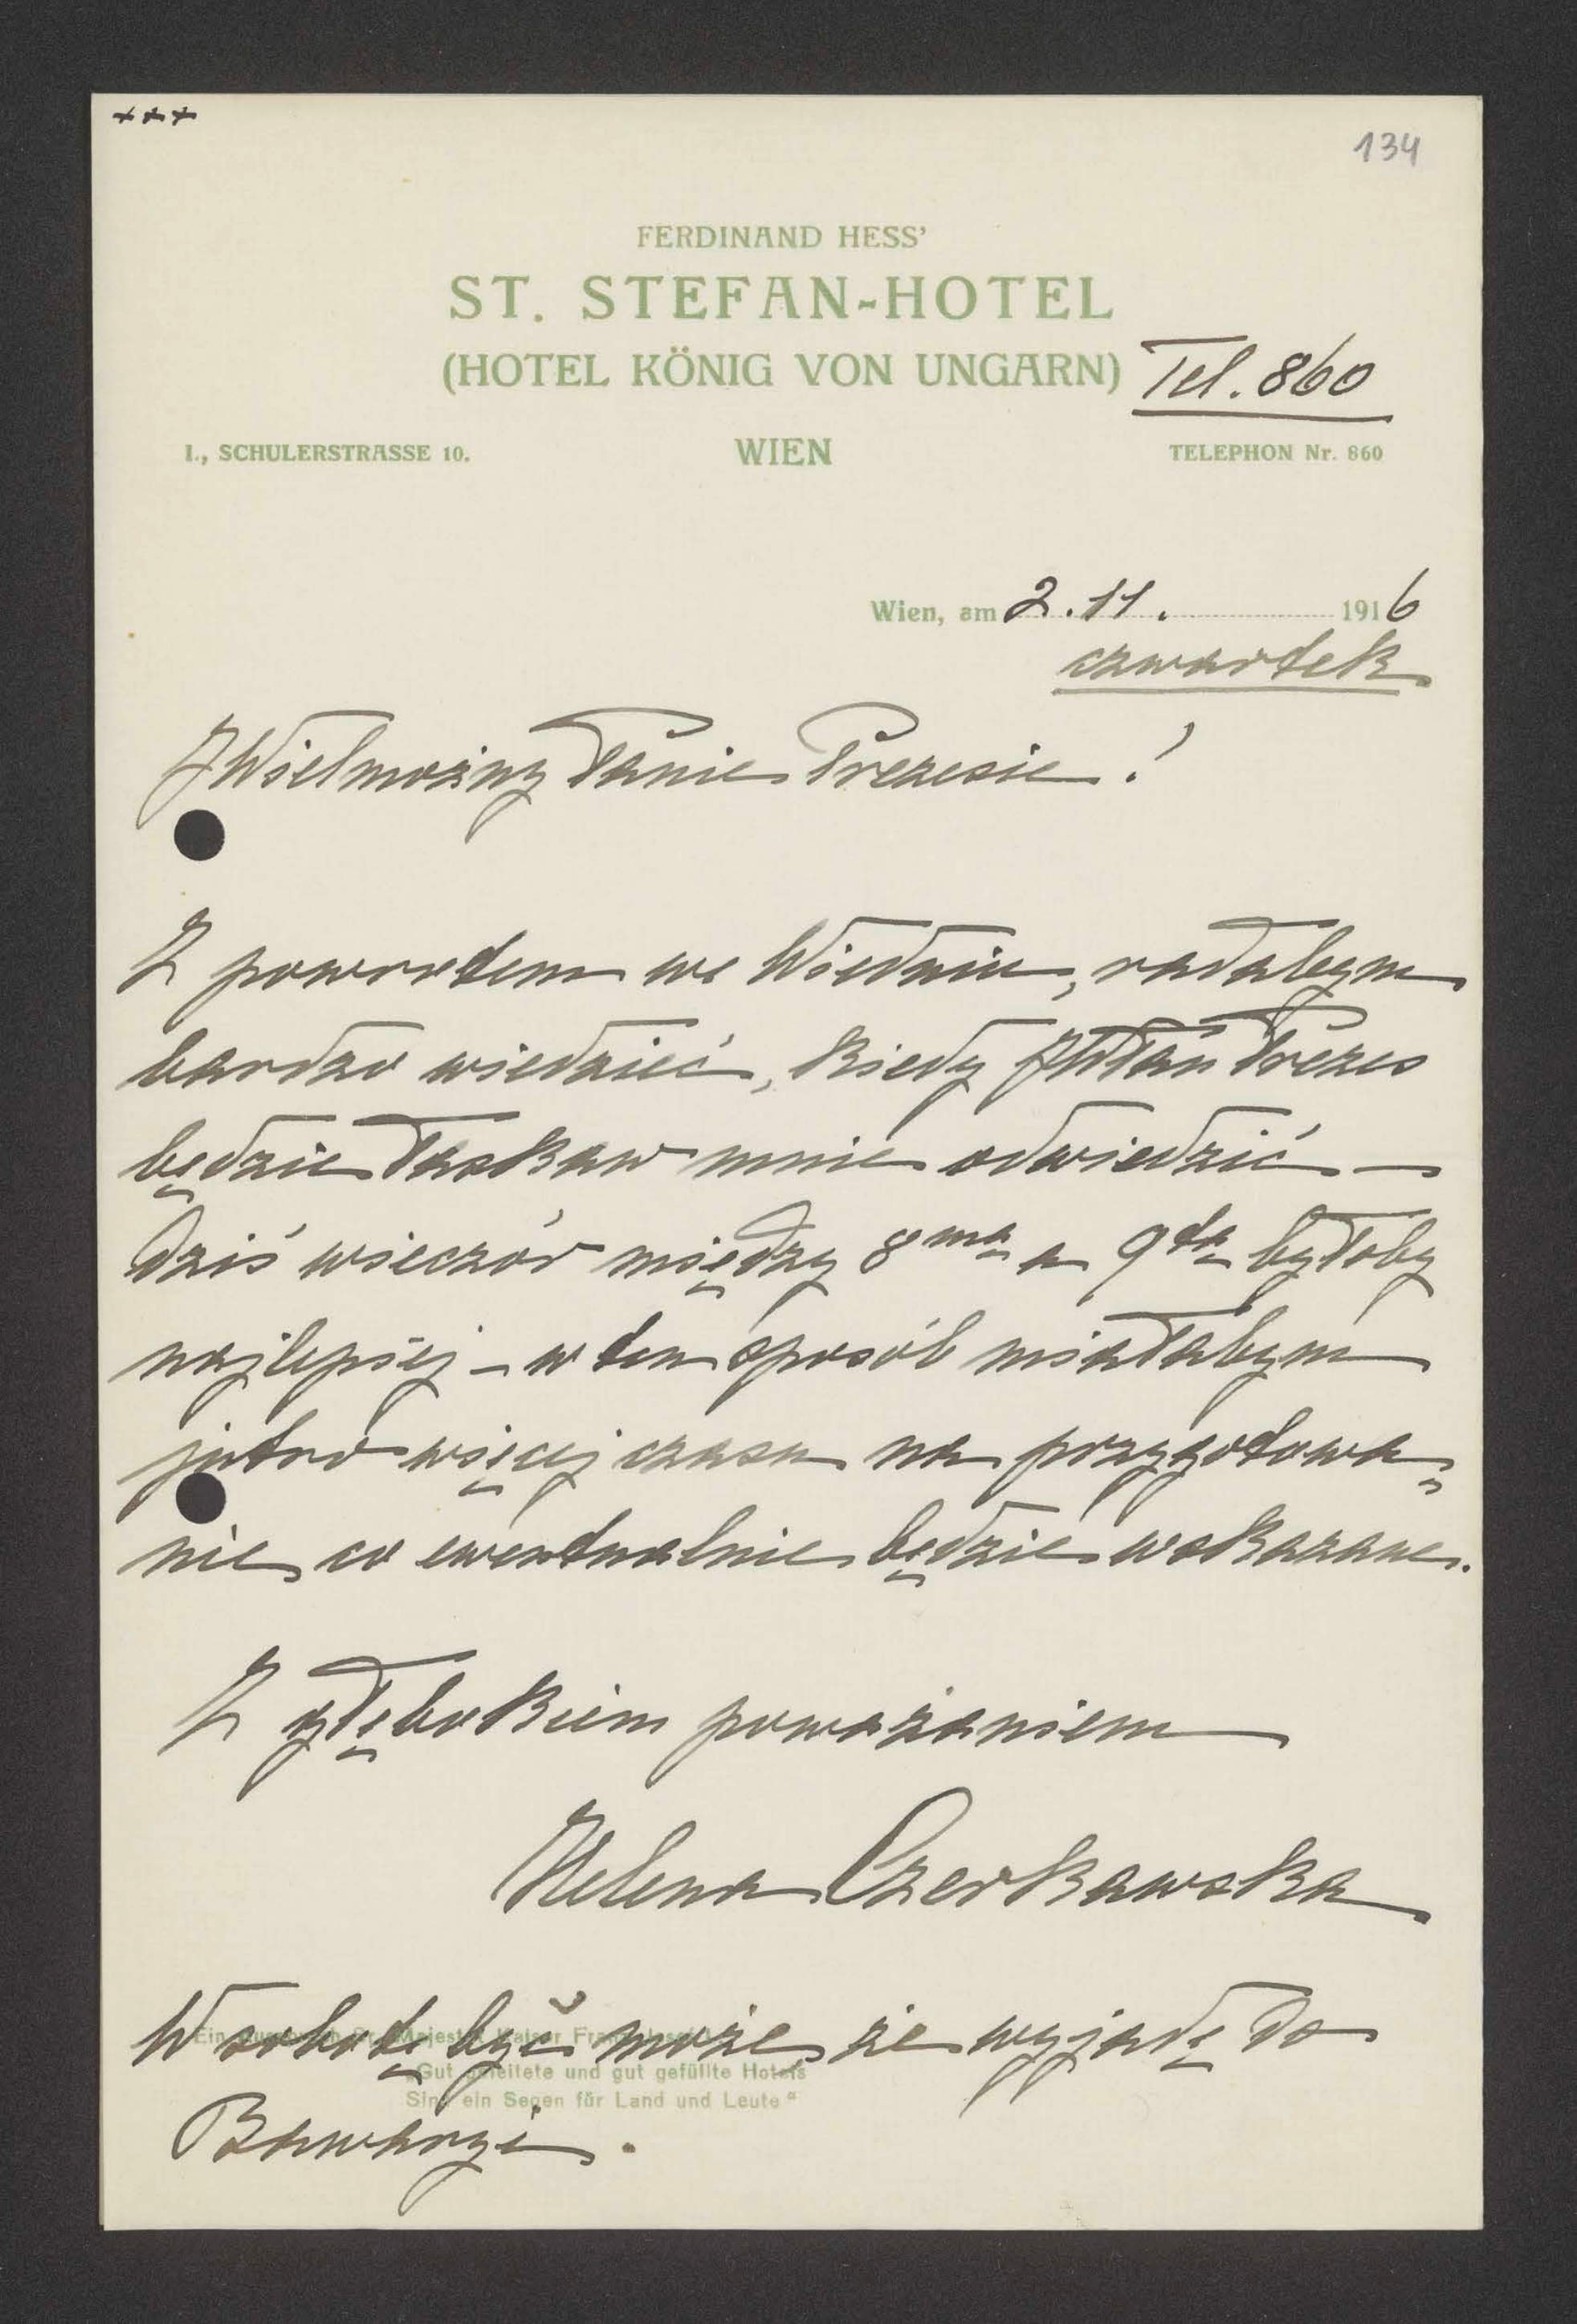 +++
134
FERDINAND HESS'
ST. STEFAN-HOTEL
(HOTEL KÖNIG VON UNGARN)
Tel. 860
I., SCHULERSTRASSE 10. WIEN TELEPHON Nr. 860
Wien, am 2.11. 1916
czwartek
JWielmożny Panie Prezesie!
Z powrotem we Wiedniu, radabym
bardzo wiedzieć, kiedy JWPan Prezes
będzie łaskaw mnie odwiedzić –
dziś wieczór między 8mą a 9tą byłoby
najlepiej – w ten sposób miałabym
jutro więcej czasu na przygotowa„
nie, co ewentualnie będzie wskazane.
Z głębokiem poważaniem
Helena Czerkawska
W sobotę być może, że wyjadę do
Ein Ausspruch Sr. Majestät Kaiser Franz Josef I.
„Gut geleitete und gut gefüllte Hotels
Sind ein Segen für Land und Leute“
Bawaryi.